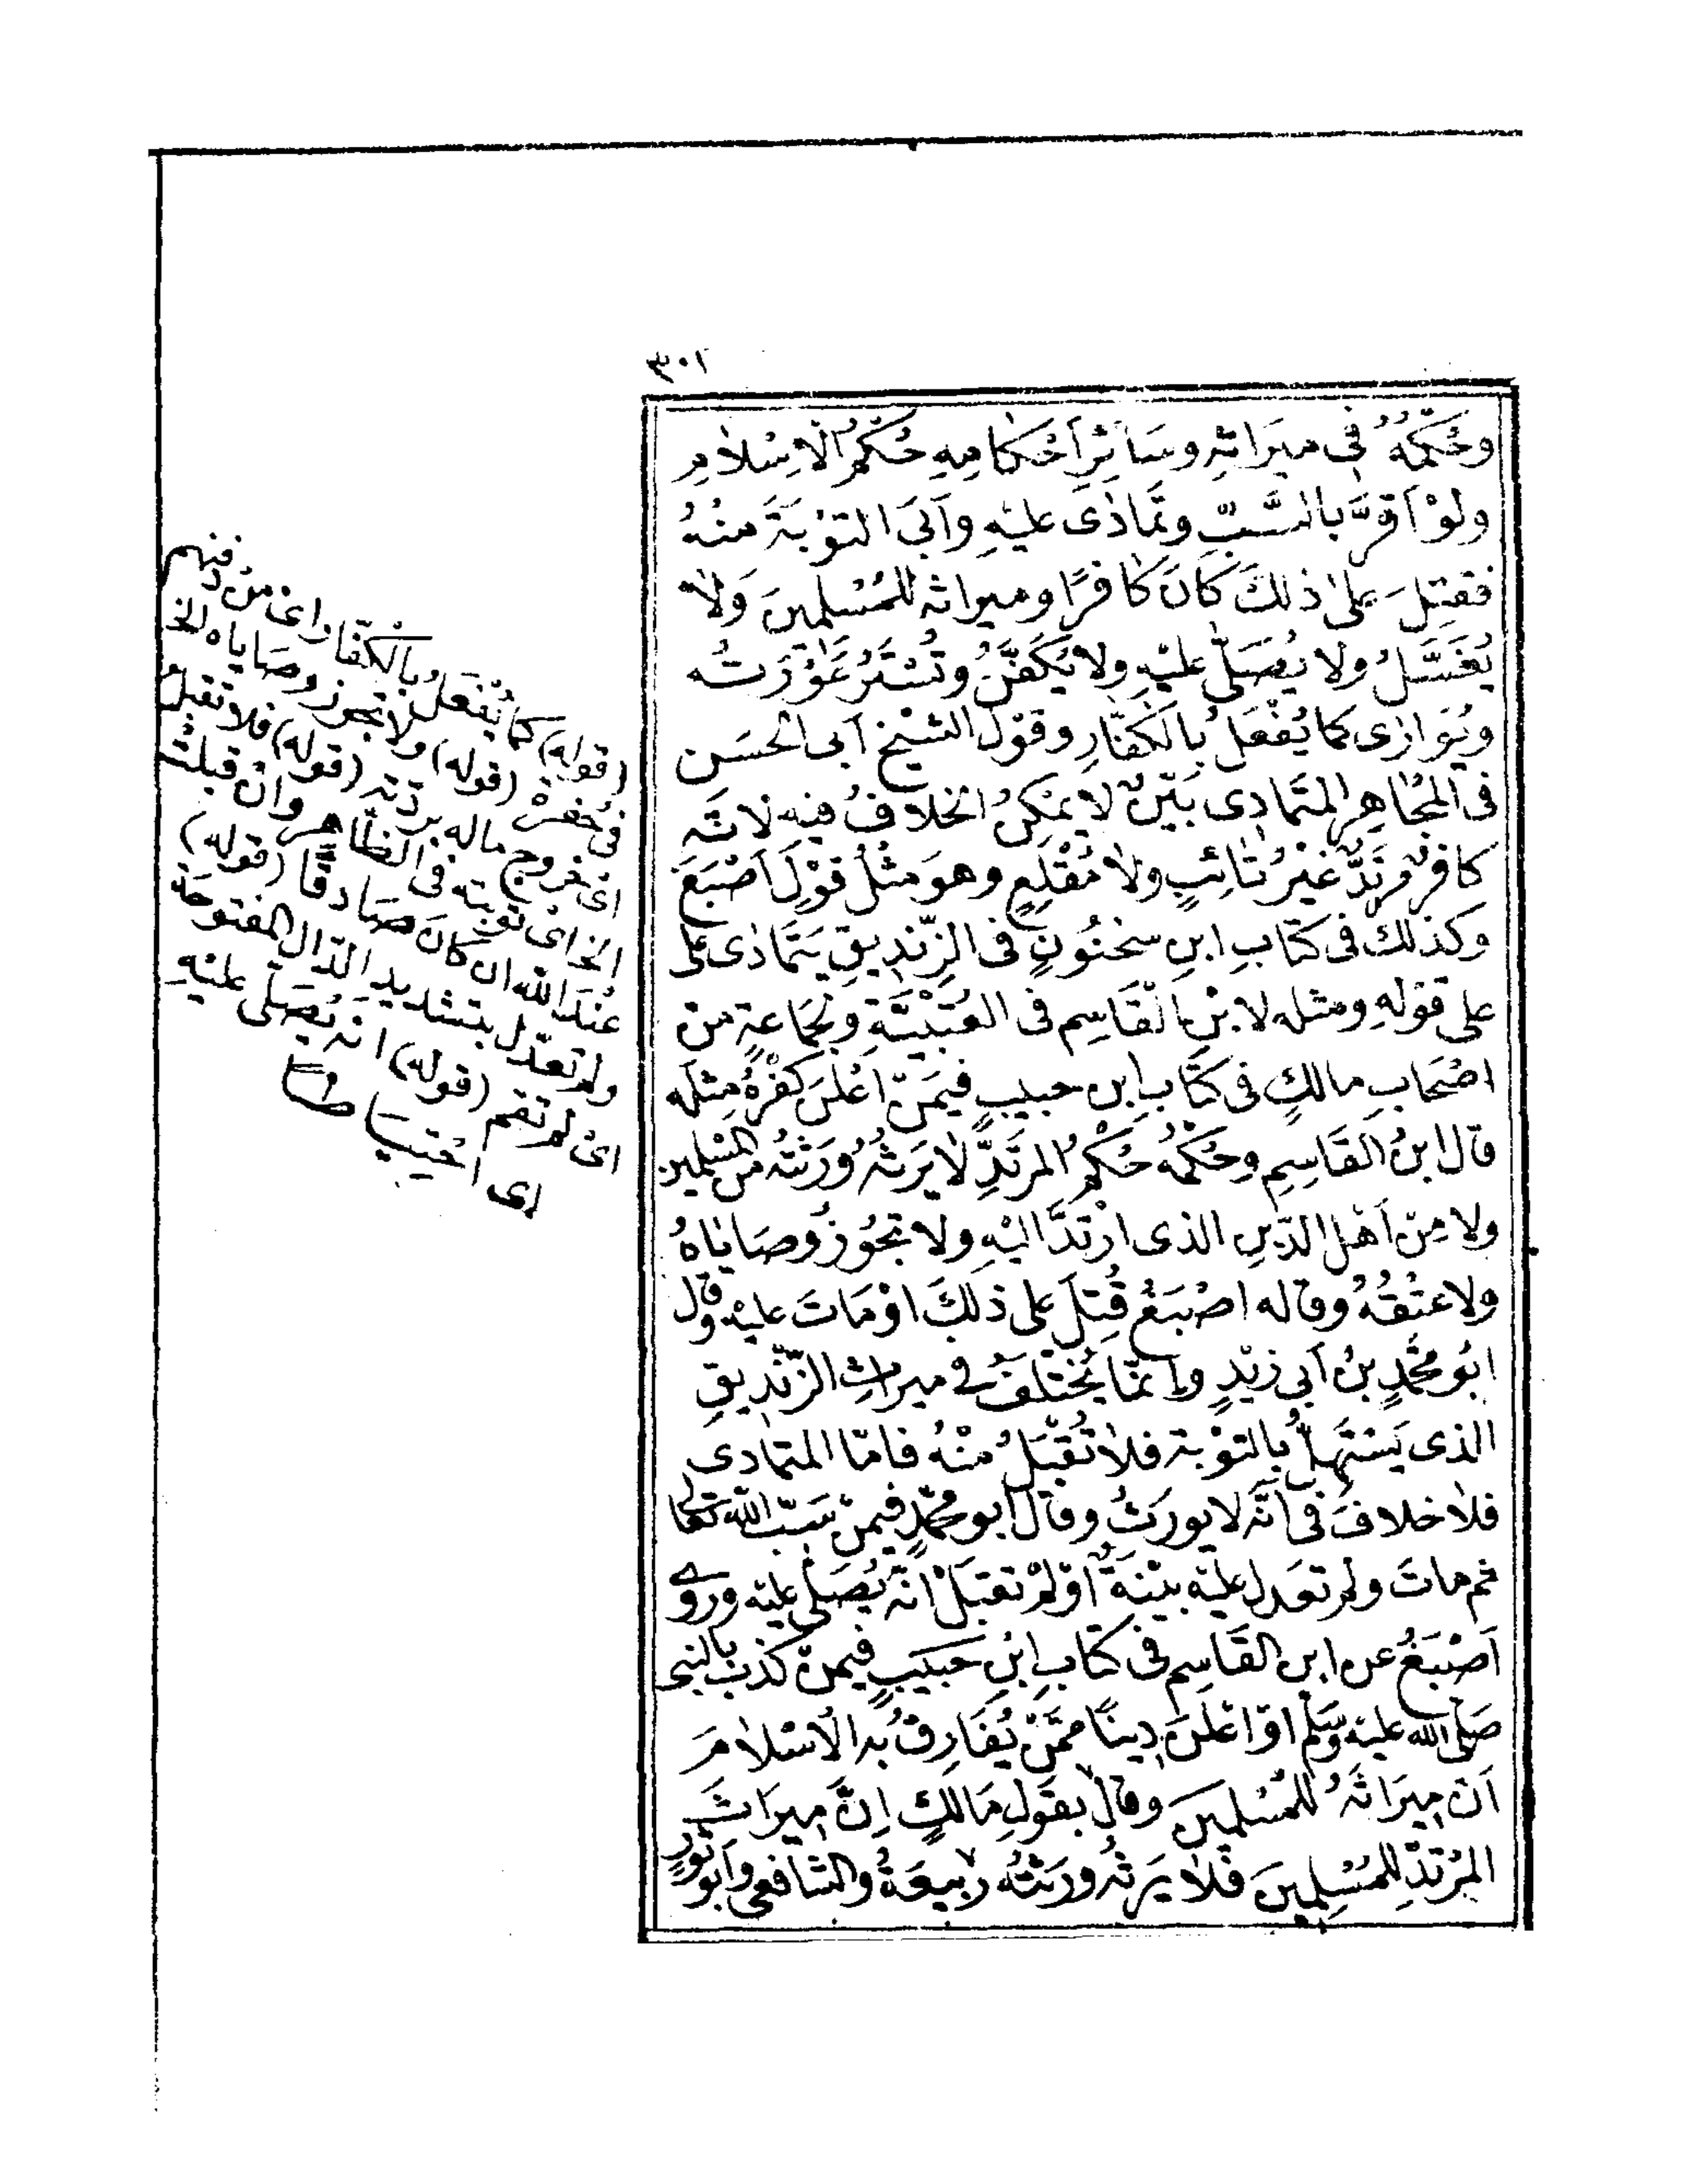 ٣٠١
وحُكْمُهُ في ميرَاثِهِ وسَائِرِ أَحْكَامِهِ حُكْمُ الْإِسْلَامِ
ولوْ أَقرَّ بالسَّبِّ وتَمَادَى عليْهِ وأَبَى التوْبَةَ منْهُ
فقُتِلَ على ذلكَ كانَ كافرًا وميراثه للمُسْلمينَ وَلَا
يُغَسَّلُ ولا يُصَلَّى عليْهِ ولا يُكَفَّنُ وتُسْتَرُ عَوْرَتُه
ويُوَارَى كما يُفْعَلُ بالكفَّارِ وقوْلُ الشيْخِ أبى الحسَن
فى المُجَاهِرِ المتَمادى بَيِّنٌ لا يمْكِنُ الخلافُ فيه لانه
كافرٌ مرتَدٌّ غيْرُ تائِبٍ ولا مُقْلِعٍ وهوَ مثْلُ قوْلِ أَصْبَغَ
وكذلك فى كتابِ ابنِ سحْنُونٍ فى الزّنديقِ يَتَمَادَى على
على قوْلهِ ومثله لابْنِ الْقَاسِم فى العُتْبِيَّةِ ولجَماعةٍ من
اصْحَابِ مالكٍ فى كتابِ ابن حبيبٍ فيمَنْ اعْلَنَ كفْرَهُ مِثله
قال ابنُ القَاسِمِ وحُكمُهُ حُكْمُ المرتَدِّ لا يَرِثُهُ وَرَثَتُه من المسْلمين
ولا مِنْ أَهْلِ الدّينِ الذى ارْتَدَّ اليْهِ ولا تجُوزُ وصَايَاهُ
ولا عتْقُهُ وقاله اصْبَغُ قُتِلَ على ذلكَ اوْ مَاتَ عليْه وقال
ابُو محمَّدٍ بنُ أَبِي زيْدٍ وإنمّا يُخْتَلَفُ في ميراثِ الزّنْديقِ
الذى يَسْتَهِلُّ بالتوْبة فلا تُقْبَلُ منْهُ فامّا المتمادى
فلا خلافَ فى أنَّه لا يورَثُ وقال أبو محمّدٍ فيمنْ سَبّ الله تعالى
ثم ماتَ ولم تعَدل عليْه بيّنةٌ أوْ لمْ تقبَلْ انّه يُصَلى عليْه وروى
اَصْبَغُ عن ابن القَاسِم فى كتابِ ابْنِ حَبيبٍ فيمنْ كذب بالنبى
صَلى الله عليْه وسَلم اوْ اعْلَنَ دينًا ممَّنْ يُفَارِقُ به الْاسْلامَ
اَن ميرَاثَهُ للمُسْلمينَ وقال بقَولِ مَالكٍ اِنَّ ميرَاثَ
المرْتَدِّ للمُسْلِمِينَ فلا يَرِثُه ورَثَتُه ربيعَةُ والشافعى وأبو ثورٍ
(قوله) كما يُفْعَلُ بالكفّار اى منْ دفنهم
فى حفرة (قوله) ولا تجوز وصاياه الخ
اى خروج ماله بردّته (قوله) فلا تقبل
الخ اى توبته فى الظّاهر وانْ قبلتْ
عنْدَ الله ان كانَ صادقًا (قوله)
ولم تعدّل بتشديد الدّال المفتوحة
اىْ لم تقم (قوله) انه يُصَلى عليْهِ
اى احْتياطا